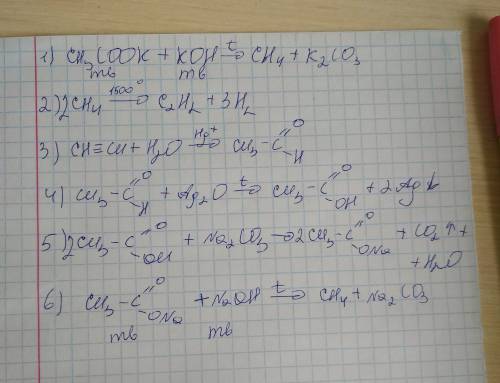 1) CH₃COOK + KOH →t CH₄ + K₂CO₃
тв тв
2) 2CH₄ →1500° C₂H₂ + 3H₂
3) CH≡CH + H₂O →Hg⁺ CH₃-C=O
H
4) CH₃-C=O + Ag₂O →t CH₃-C=O + 2Ag↓
H OH
5) 2CH₃-C=O + Na₂CO₃ → 2CH₃-C=O + CO₂↑ +
OH ONa + H₂O
6) CH₃-C=O + NaOH →t CH₄ + Na₂CO₃
ONa
тв тв